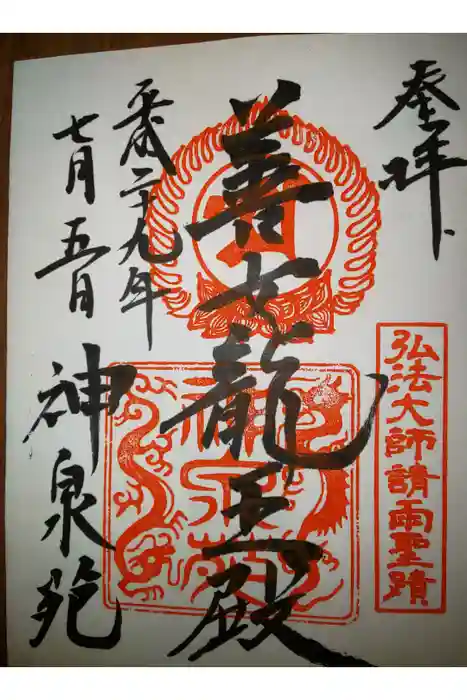 奉拝
弘法大師請雨聖蹟
善女龍王殿
神泉苑
平成二十九年
七月五日
神泉苑